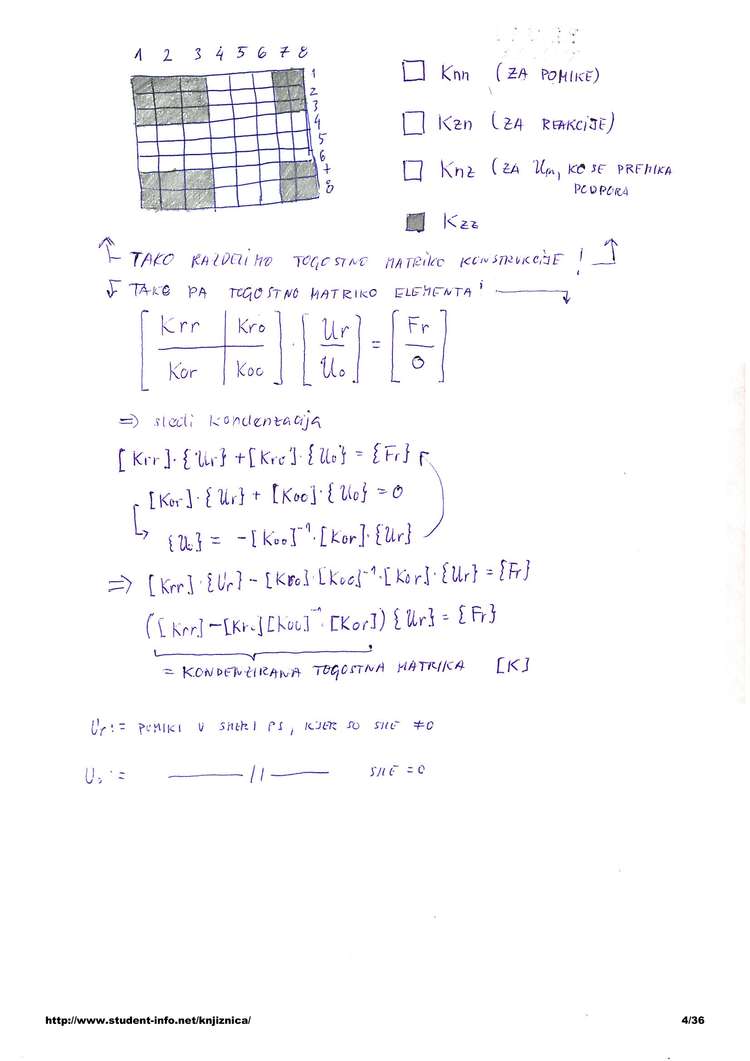 1 2 3 4 5 6 7 8
1
2
3
4
5
6
7
8
Knn (ZA POMIKE)
Kzn (ZA REAKCIJE)
Knz (ZA Un, KO SE PREMIKA
PODPORA
Kzz
TAKO RAZDELIMO TOGOSTNO MATRIKO KONSTRUKCIJE !
TAKO PA TOGOSTNO MATRIKO ELEMENTA i
[Krr | Kro] · [Ur] = [Fr]
[Kor | Koo] [Uo] [0]
=> sledi kondenzacija
[Krr]·{Ur} + [Kro]·{Uo} = {Fr}
[Kor]·{Ur} + [Koo]·{Uo} = 0
{Uo} = -[Koo]⁻¹·[Kor]·{Ur}
=> [Krr]·{Ur} - [Kro]·[Koo]⁻¹·[Kor]·{Ur} = {Fr}
([Krr] - [Kro][Koo]⁻¹·[Kor]) {Ur} = {Fr}
= KONDENZIRANA TOGOSTNA MATRIKA [K]
Ur := POMIKI V SMERI PS, KJER SO SILE ≠0
Uo := —//— SILE = 0
http://www.student-info.net/knjiznica/
4/36